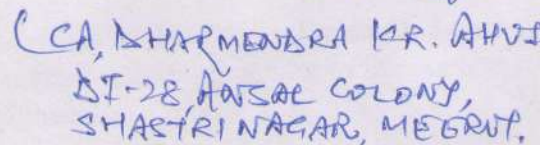 (CA, DHARMENDRA KR. AHUJ
DI-28, ANSAL COLONY,
SHASTRI NAGAR, MEERUT.